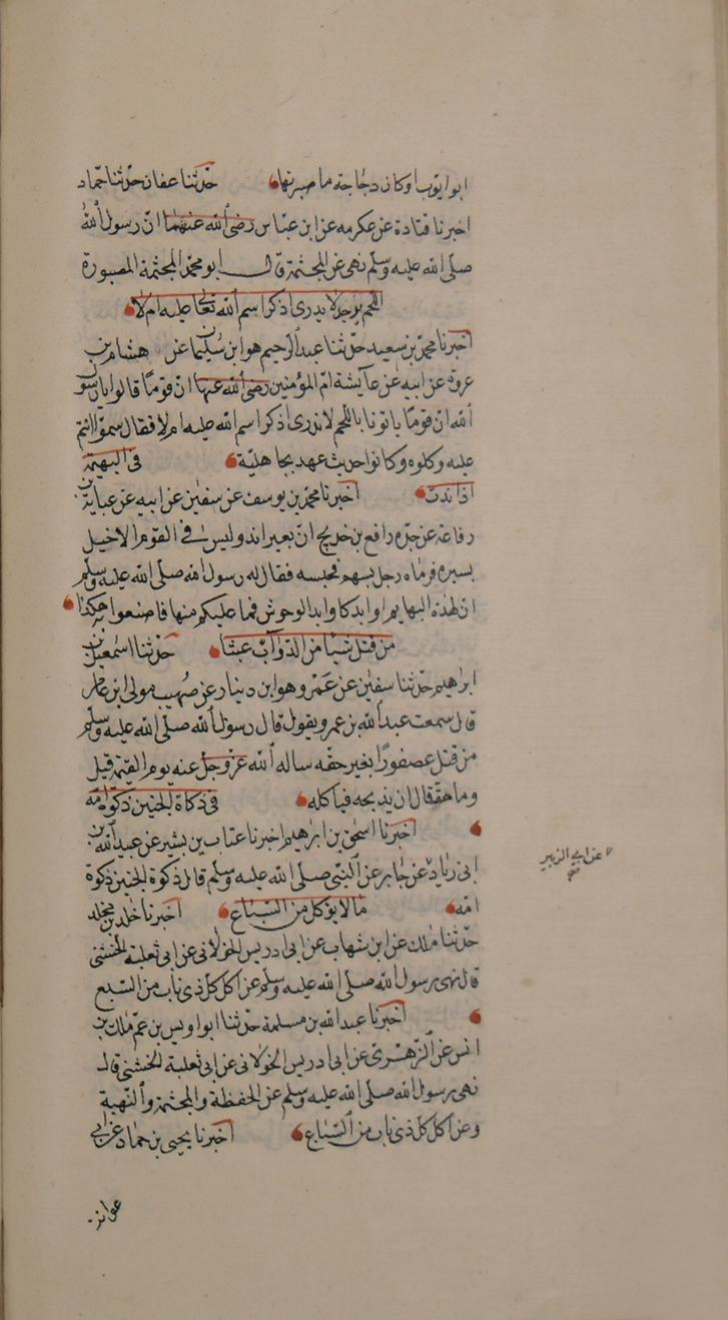 ابو ايوب او كان دجاجة ما صبرتها حدثنا عفان حدثنا حماد
اخبرنا قتادة عن عكرمه عن ابن عباس رضى الله عنهما ان رسول الله
صلى الله عليه وسلم نهى عن المجثمة قال ابو محمد المجثمة المصبورة
اللحم يوجد لا يدرى اذكر اسم الله تعالى عليه ام لا
اخبرنا محمد بن سعيد حدثنا عبد الرحيم هو ابن سليمان عن هشام بن
عروة عن ابيه عن عايشة ام المؤمنين رضى الله عنها ان قوما قالوا يا رسول
الله ان قوما ياتونا باللحم لا ندرى اذكر اسم الله عليه ام لا فقال سموا انتم
عليه وكلوه وكانوا حديث عهد بجاهلية فى البهيمة
اذا ندت اخبرنا محمد بن يوسف عن سفين عن ابيه عن عباية بن
رفاعة عن جده رافع بن خديج ان بعيرا ند وليس فى القوم الا خيل
يسيره فرماه رجل بسهم فحبسه فقال له رسول الله صلى الله عليه وسلم
ان لهذه البهايم اوابد كاوابد الوحوش فما غلبكم منها فاصنعوا به هكذا
من قتل شيئا من الدواب عبثا حدثنا اسمعيل بن
ابرهيم حدثنا سفين عن عمرو هو ابن دينار عن صهيب مولى ابن عامر
قال سمعت عبد الله بن عمرو يقول قال رسول الله صلى الله عليه وسلم
من قتل عصفورا بغير حقه ساله الله عز وجل عنه يوم القيمة قيل
وما حقه قال ان يذبحه فياكله فى ذكاة الجنين ذكوة امه
اخبرنا اسحق بن ابرهيم اخبرنا عتاب بن بشير عن عبيد الله بن
ابى زياد عن جابر عن النبي صلى الله عليه وسلم قال ذكوة الجنين ذكوة
عن ابي الزبير
امه ما لا يوكل من السباع اخبرنا خلد بن مخلد
حدثنا ملك عن ابن شهاب عن ابى ادريس الخولانى عن ابى ثعلبة الخشنى
قال نهى رسول الله صلى الله عليه وسلم عن اكل كل ذى ناب من السبع
اخبرنا عبد الله بن مسلمة حدثنا ابو اويس بن عم ملك بن
انس عن الزهرى عن ابى ادريس الخولانى عن ابى ثعلبة الخشنى قال
نهى رسول الله صلى الله عليه وسلم عن الخطفة والمجثمة والنهبة
وعن اكل كل ذى ناب من السباع اخبرنا يحيى بن حماد عن ابى
عوانة